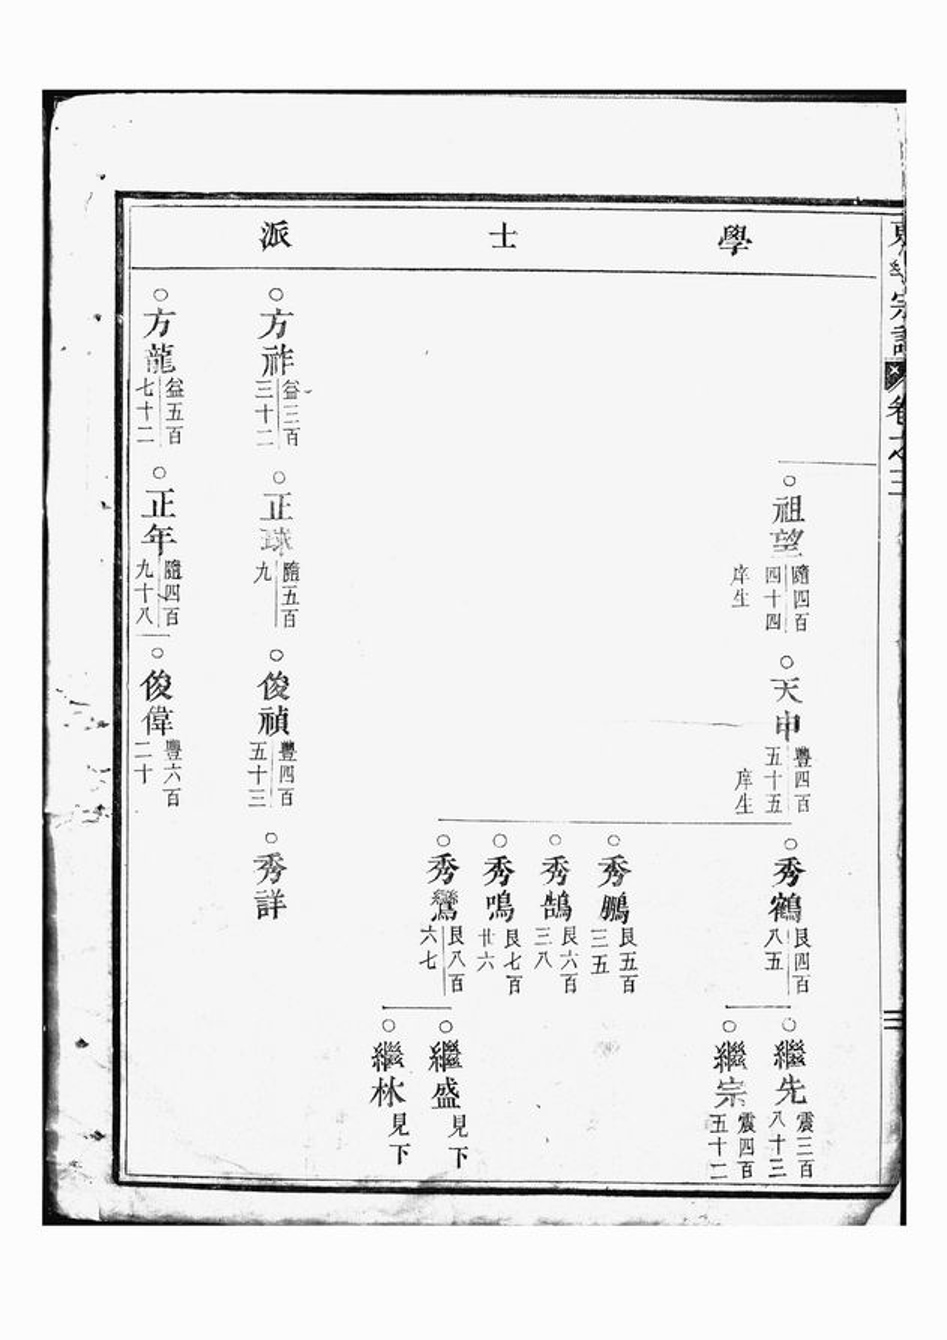 宗譜
卷之三
學士派
祖望
隨四百
四十四
庠生
天申
豐四百
五十五
庠生
秀鶴
艮四百
八五
繼先
震三百
八十三
繼宗
震四百
五十二
秀鵬
艮五百
三五
秀鵠
艮六百
三八
秀鳴
艮七百
廿六
秀鸞
艮八百
六七
繼盛
見下
繼林
見下
方祚
益三百
三十二
正球
隨五百
九
俊禎
豐四百
五十三
秀詳
方龍
益五百
七十二
正年
隨四百
九十八
俊偉
豐六百
二十